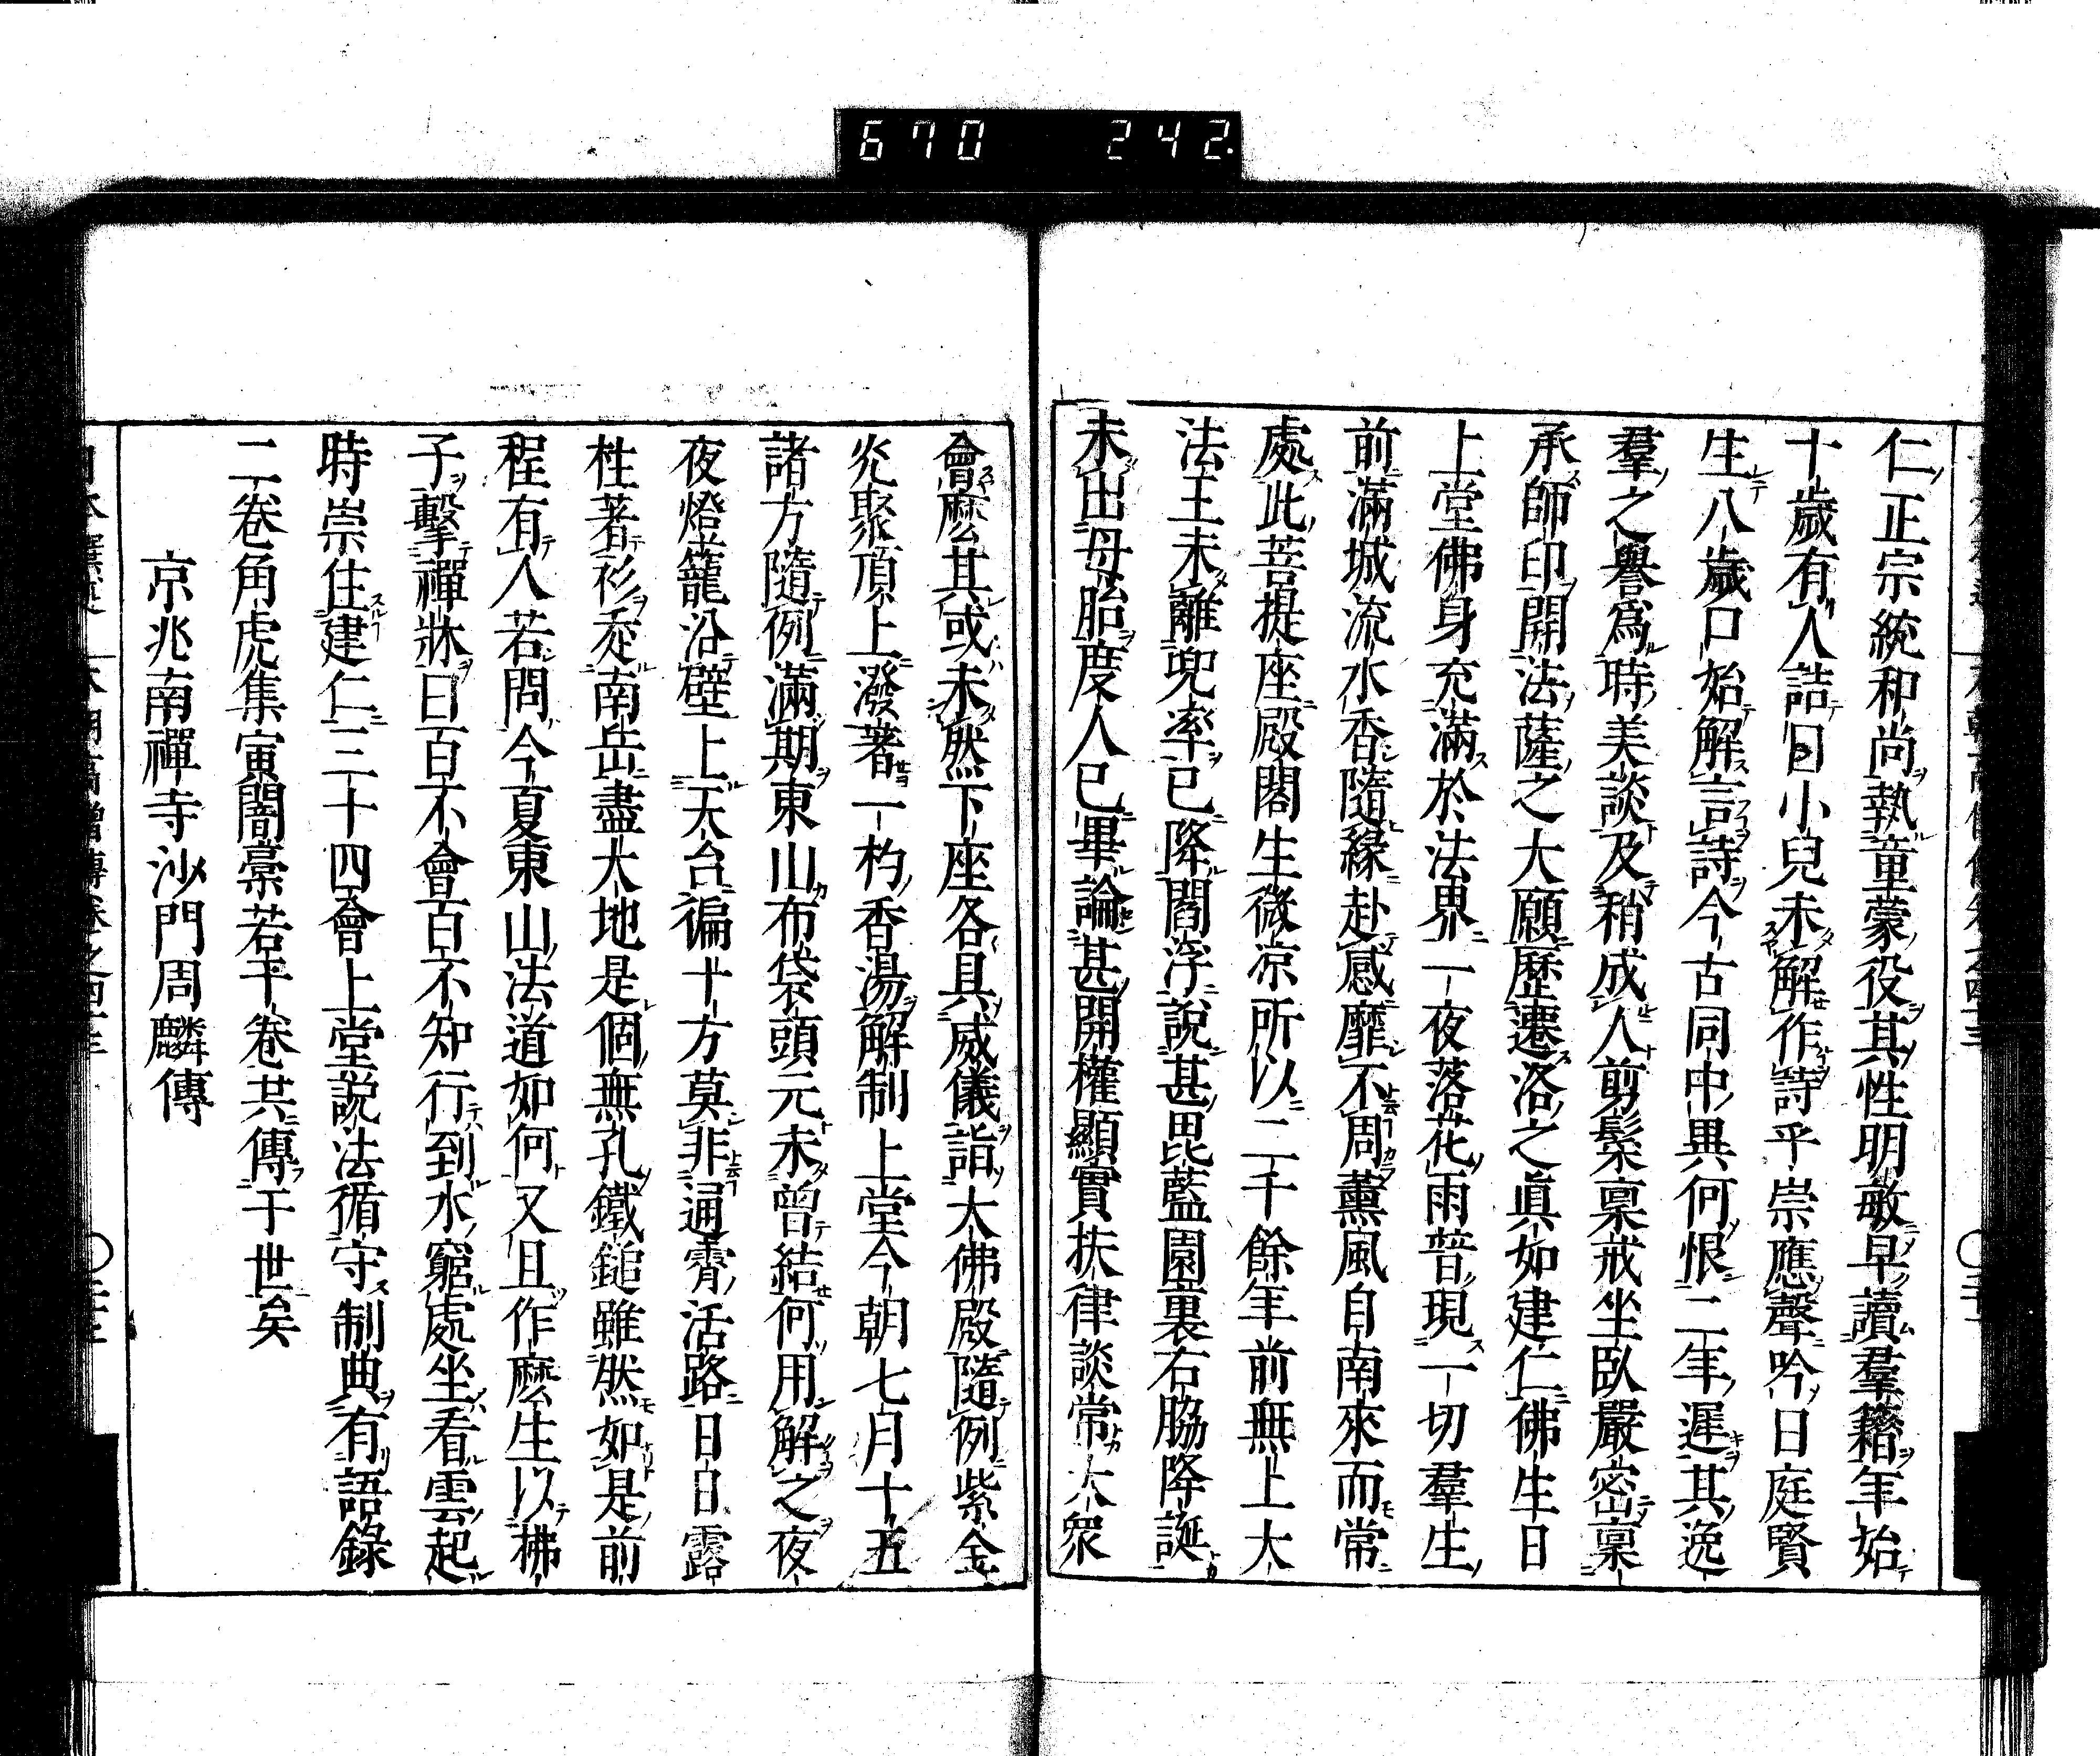 670 242.
仁正宗統和尚執童蒙役其性明敏早讀羣籍年始
十歲有人詰曰小兒未解作詩乎崇應聲吟曰庭賢
生八歲口始解言詩今古同中異何恨二年遲其逸
羣之譽爲時美談及稍成人剪髮稟戒坐臥嚴密稟
承師印開法薩之大願歷遷洛之眞如建仁佛生日
上堂佛身充滿於法界一夜落花雨普現一切羣生
前滿城流水香隨緣赴感靡不周薰風自南來而常
處此菩提座殿閣生微凉所以二千餘年前無上大
法王未離兜率已降閻浮說甚毘藍園裏右脇降誕
未出母胎度人已畢論甚開權顯實扶律談常大衆
會麽其或未然下座各具威儀詣大佛殿隨例紫金
光聚頂上潑著一杓香湯解制上堂今朝七月十五
諸方隨例滿期東山布袋頭元未曾結何用解之夜
夜燈籠沿壁上天台徧十方莫非通霄活路日日露
柱著衫走南岳盡大地是個無孔鐵鎚雖然如是前
程有人若問今夏東山法道如何又且作麽生以拂
子擊禪牀曰百不會百不知行到水窮處坐看雲起
時崇住建仁三十四會上堂説法循守制典有語錄
二卷角虎集寅闇稾若干卷共傳于世矣
京兆南禪寺沙門周麟傳